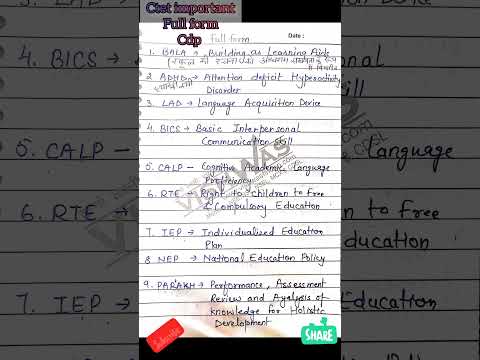 Ctet important
Full form
Cdp
Full form
Date :
1. BALA → Building as Learning Aids
2. ADHD → Attention deficit Hyperactivity
Disorder
3. LAD → Language Acquisition Device
4. BICS → Basic Interpersonal
Communication skill
5. CALP – Cognitive Academic Language
Proficiency
6. RTE – Right to Children to Free
& Compulsory Education
7. IEP → Individualised Education
Plan
8 NEP → National Education Policy
9. PARAKH → Performance, Assessment
Review and Analysis of
knowledge for Holistic
Development
SHARE
4. BICS →
5. CALP –
6. RTE →
7. IEP →
skill
Language
to Free
Education
Education